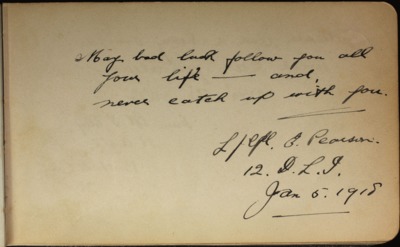 May bad luck follow you all
your life — and,
never catch up with you.
L/Cpl. E. Pearson.
12. D.L.I.
Jan 5. 1918